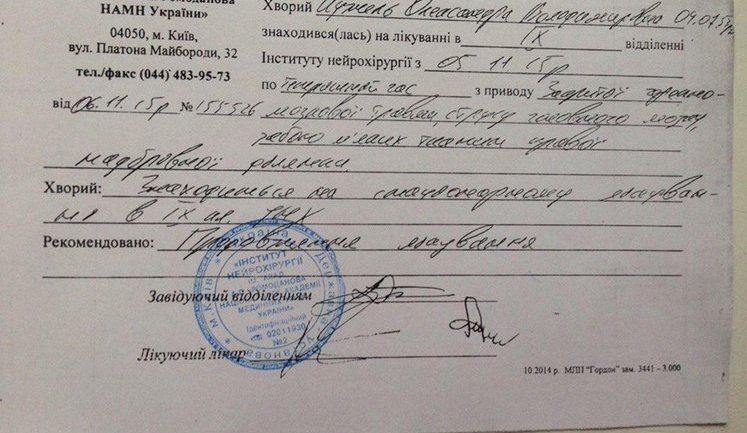 НАМН України»
04050, м. Київ,
вул. Платона Майбороди, 32
тел./факс (044) 483-95-73
від 06.11.15р №
Хворий Олександра Володимирівна
знаходився(лась) на лікуванні в IX відділенні
Інституту нейрохірургії з 05 11 15р
по теперішній час з приводу Закритої черепно-
мозкової травми струсу головного мозку,
забою м'яких тканин правої
надбрівної ділянки.
Хворий: Знаходиться на стаціонарному лікуван-
ні в IX
Рекомендовано: Продовження лікування
Завідуючий відділенням
Лікуючий лікар
«ІНСТИТУТ
НЕЙРОХІРУРГІЇ
ІМ. АКАД.
А.П. РОМОДАНОВА
НАЦІОНАЛЬНОЇ АКАДЕМІЇ
МЕДИЧНИХ НАУК
УКРАЇНИ»
Ідентифікаційний
код 02011930
№2
10.2014 р. МПП "Гордон" зам. 3441 – 3.000